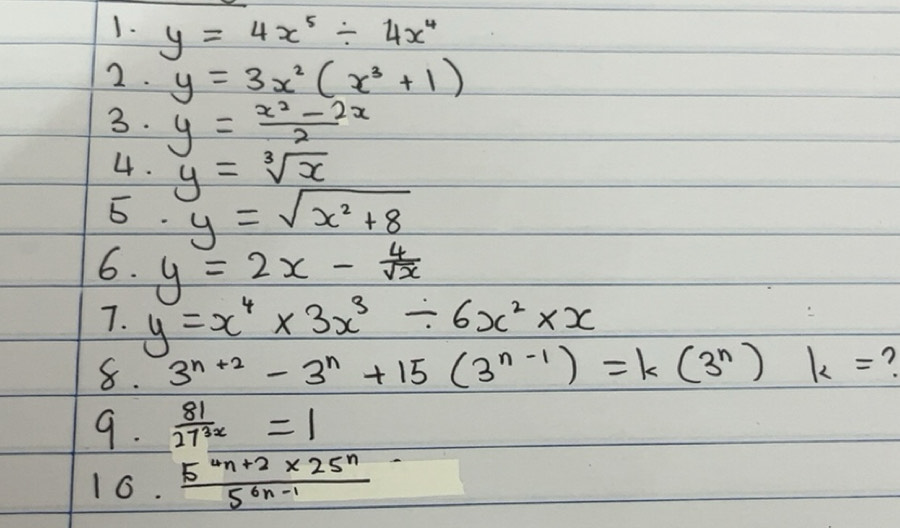 1. y = 4x⁵ ÷ 4x⁴
2. y = 3x² (x³ + 1)
3. y = (x² – 2x)/2
4. y = ∛x
5. y = √(x² + 8)
6. y = 2x – 4/√x
7. y = x⁴ × 3x³ ÷ 6x² × x
8. 3ⁿ⁺² – 3ⁿ + 15 (3ⁿ⁻¹) = k (3ⁿ) k = ?
9. 81/27³ˣ = 1
10. (5⁴ⁿ⁺² × 25ⁿ)/5⁶ⁿ⁻¹